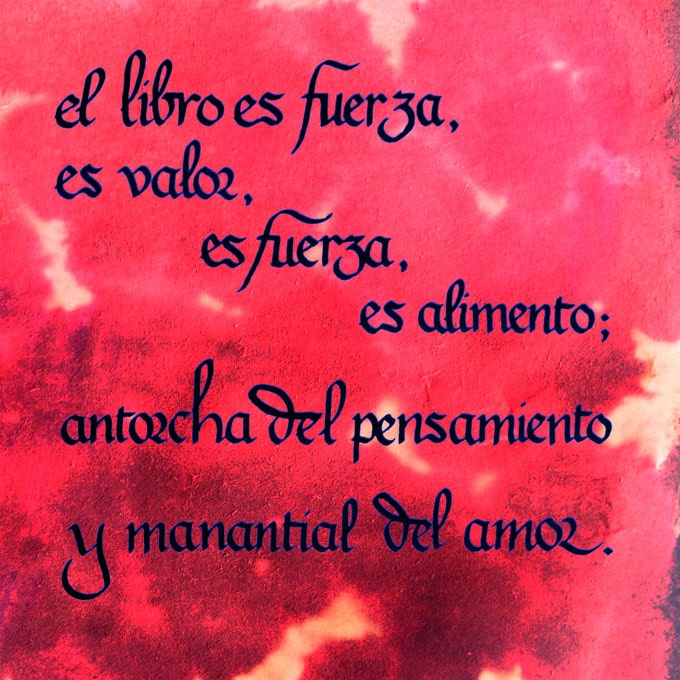 el libro es fuerza,
es valor,
es fuerza,
es alimento;
antorcha del pensamiento
y manantial del amor.